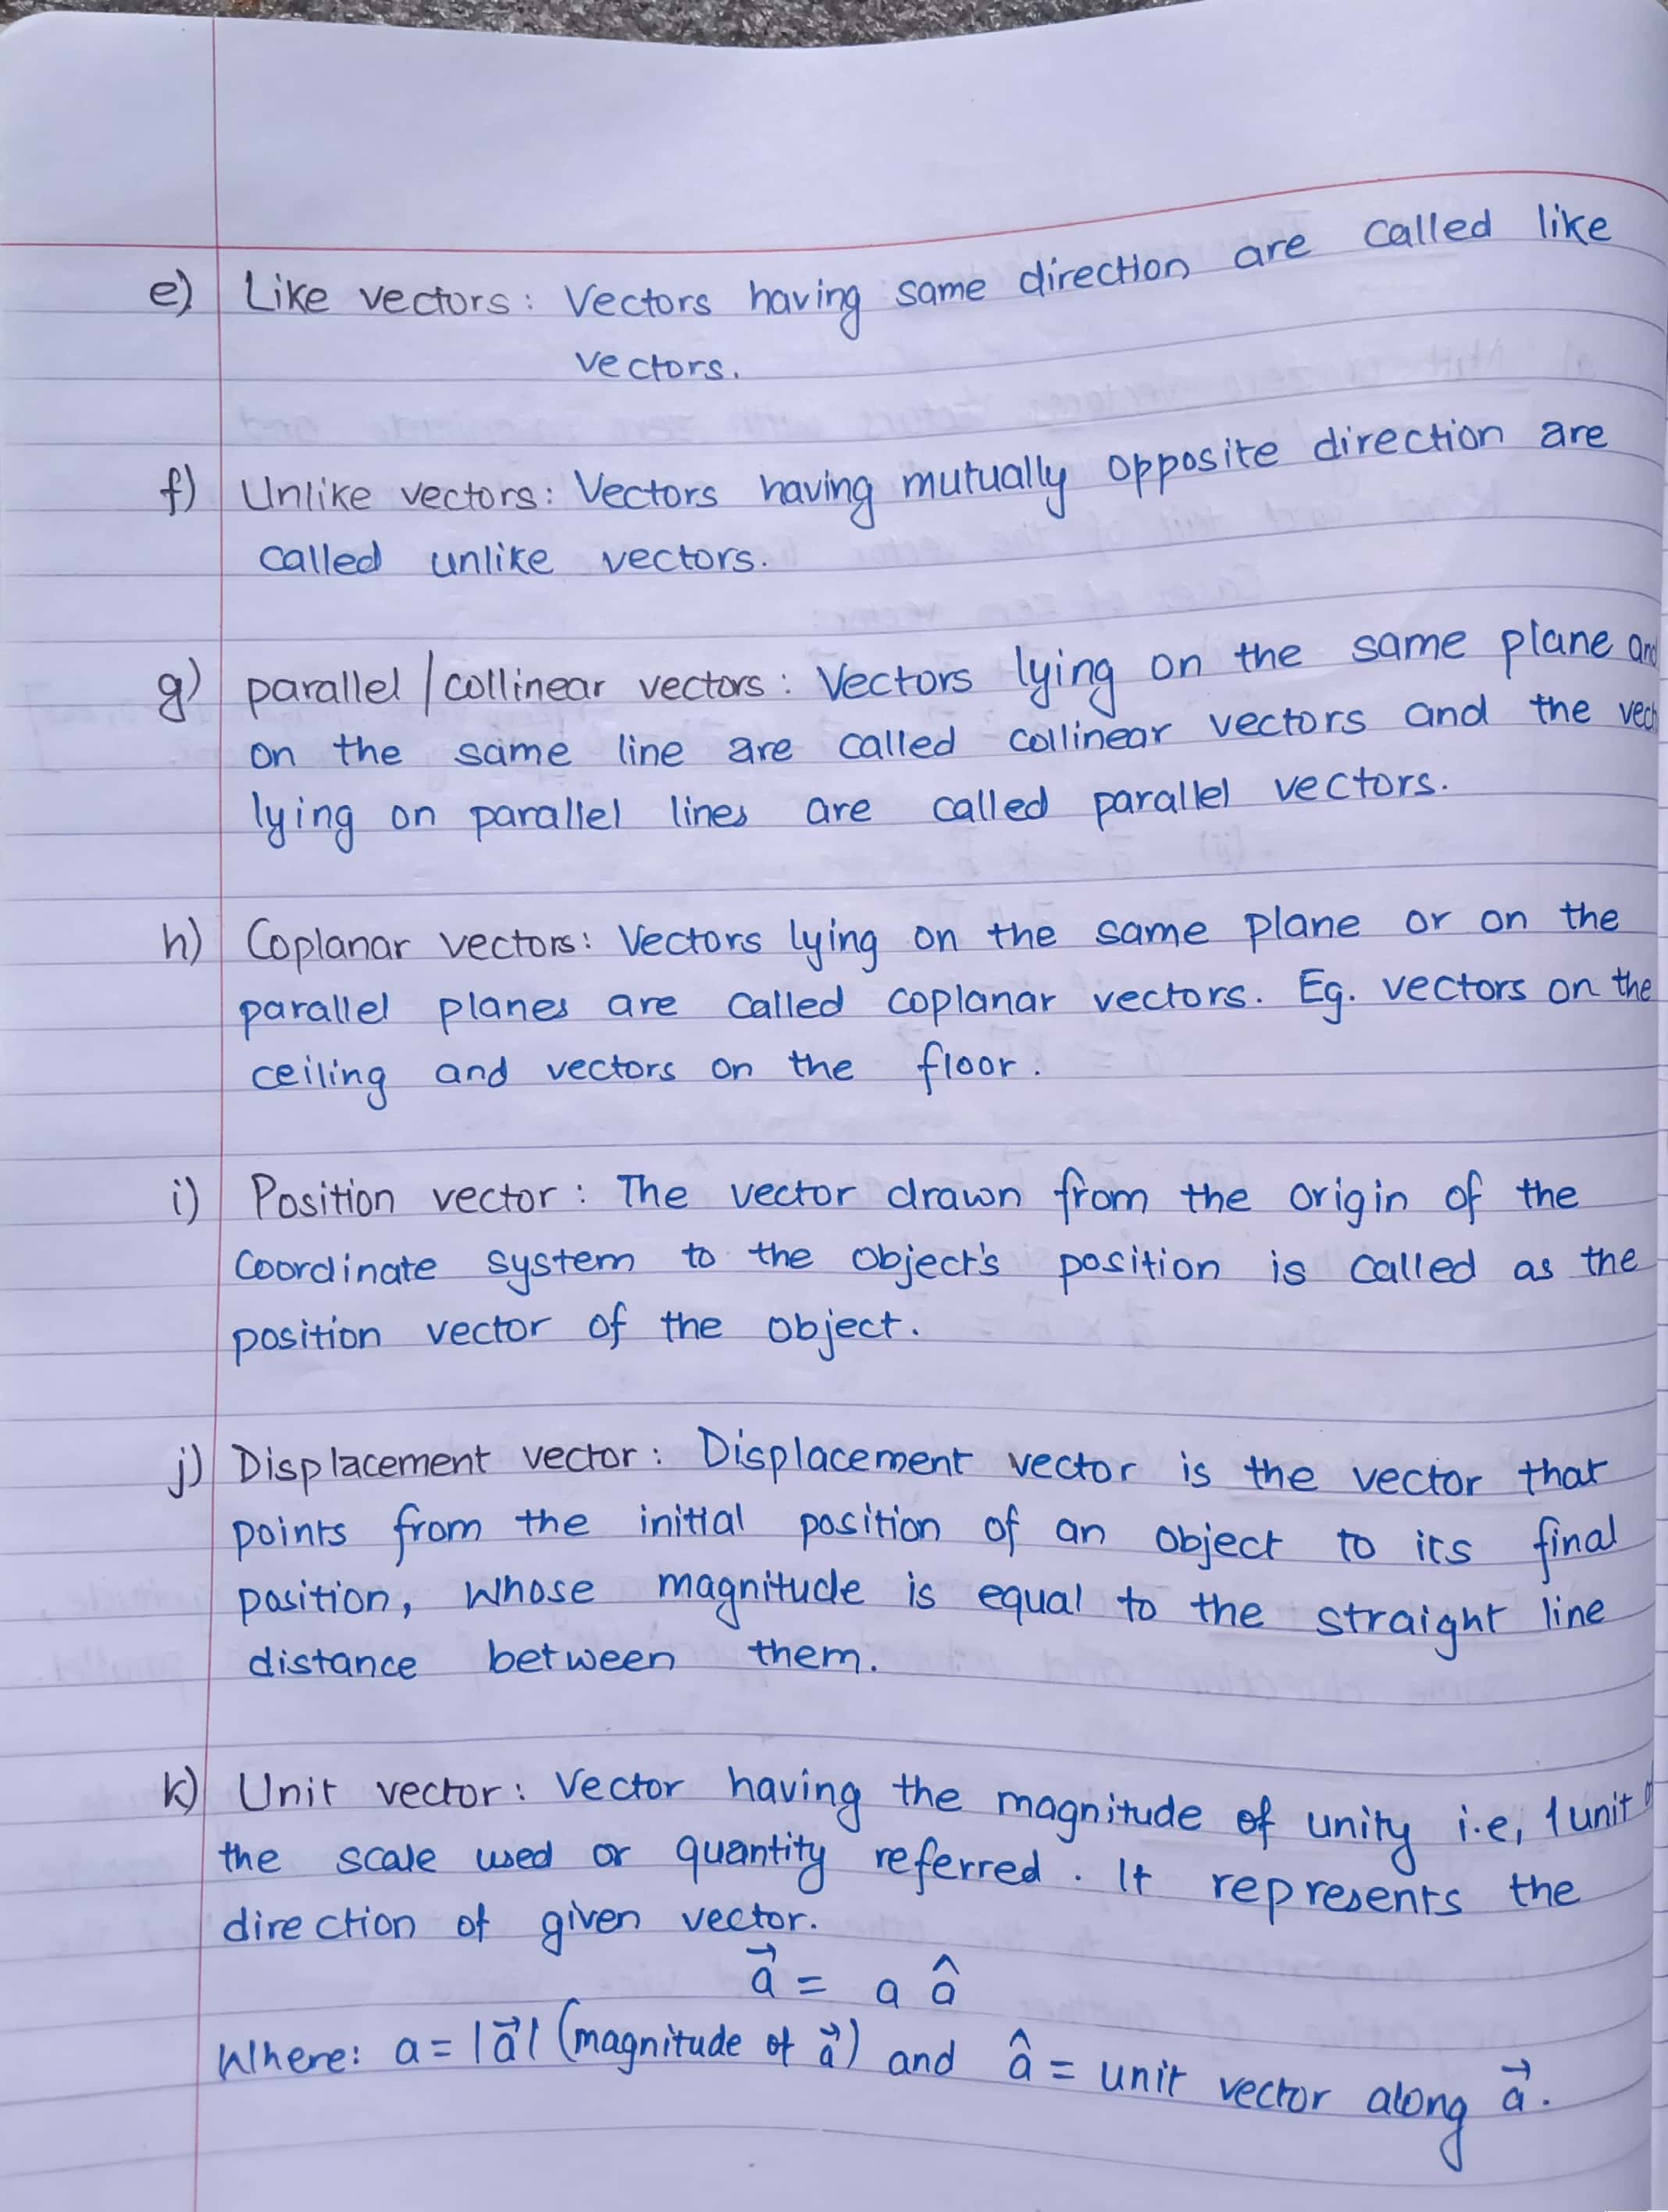 e) Like vectors: Vectors having same direction are called like
vectors.
f) Unlike vectors: Vectors having mutually opposite direction are
called unlike vectors.
g) parallel/collinear vectors: Vectors lying on the same plane and
on the same line are called collinear vectors and the vect
lying on parallel lines are called parallel vectors.
h) Coplanar vectors: Vectors lying on the same plane or on the
parallel planes are called coplanar vectors. Eg. vectors on the
ceiling and vectors on the floor.
i) Position vector: The vector drawn from the origin of the
coordinate system to the object's position is called as the
position vector of the object.
j) Displacement vector: Displacement vector is the vector that
points from the initial position of an object to its final
position, whose magnitude is equal to the straight line
distance between them.
k) Unit vector: Vector having the magnitude of unity i.e, 1 unit
the scale used or quantity referred. It represents the
direction of given vector.
a⃗ = a â
Where: a = |a⃗| (magnitude of a⃗) and â = unit vector along a⃗.